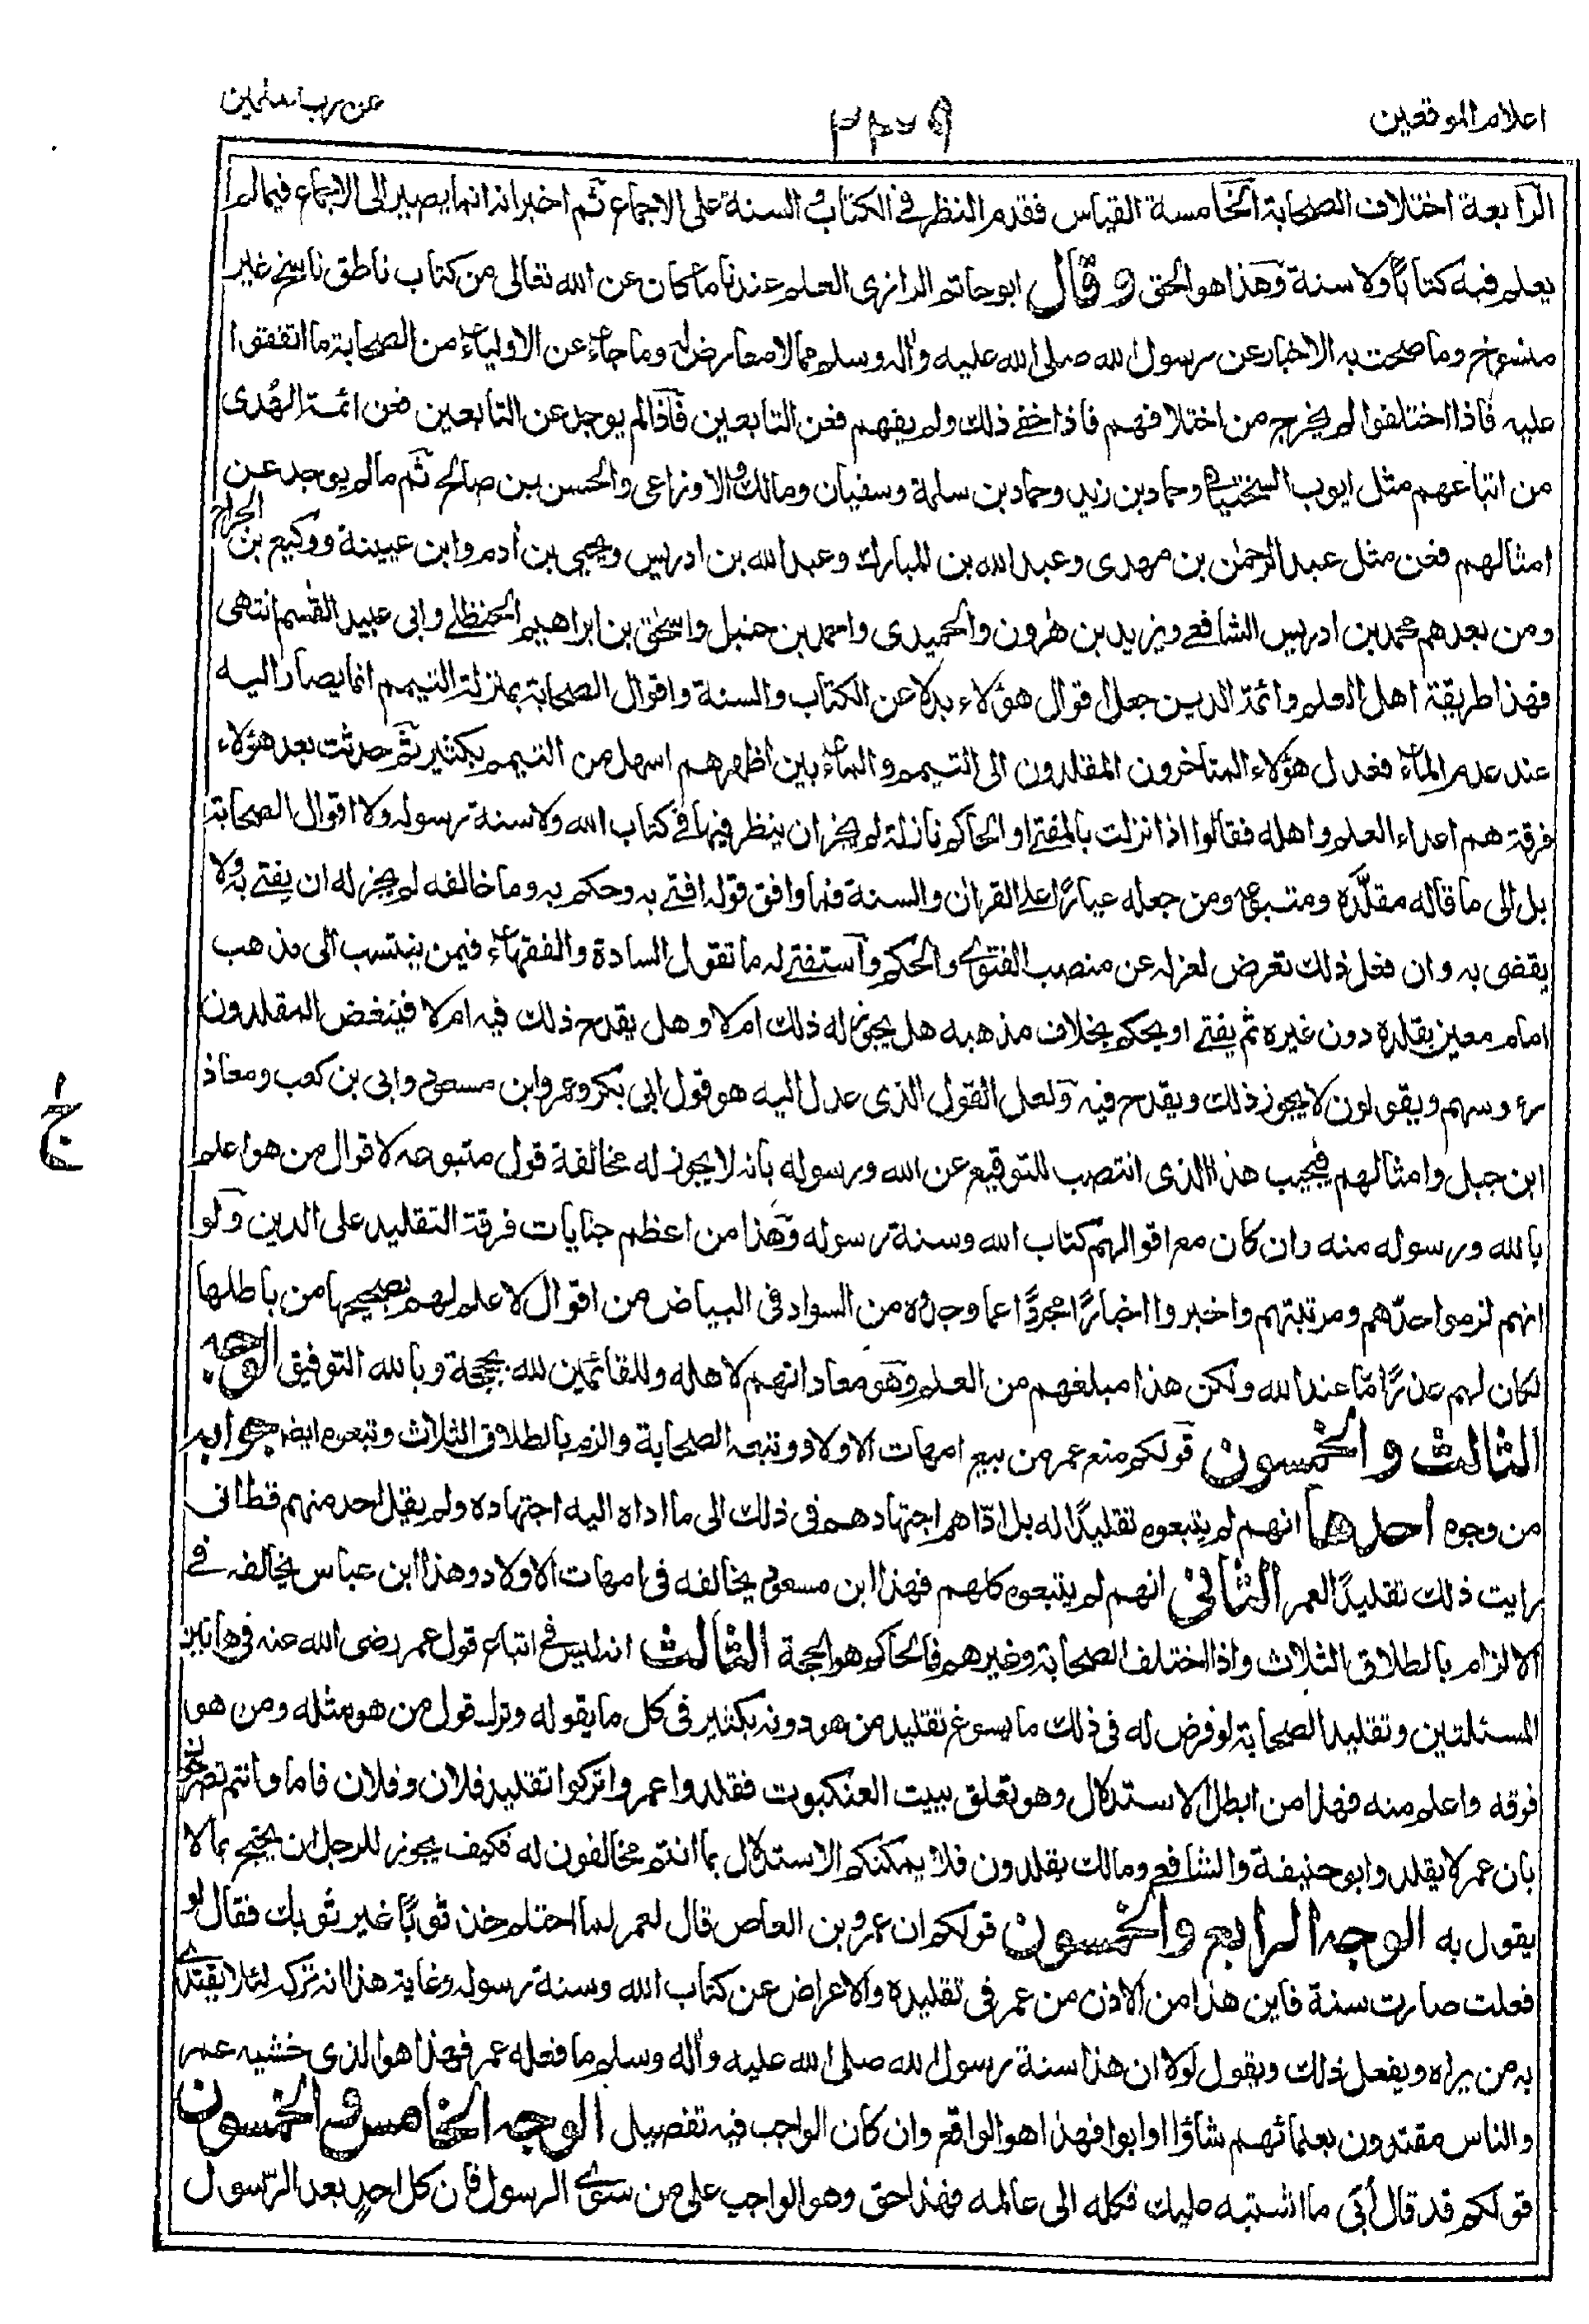 اعلام الموقعين
عن رب العلمين
الرابعة اختلاف الصحابة الخامسة القياس فقدم النظر في الكتاب والسنة على الاجماع ثم اخبر انه انما يصير الى الاجماع فيما لم
يعلم فيه كتابًا ولا سنة وهذا هو الحق وقال ابو حاتم الرازى العلم عندنا ما كان عن الله تعالى من كتاب ناطق ناسخ غير
منسوخ وما صحت به الاخبار عن رسول الله صلى الله عليه واله وسلم مما لا معارض له وما جاء عن الاولياء من الصحابة ما اتفقوا
عليه فاذا اختلفوا لم يخرج من اختلافهم فاذا خفے ذلك ولم يفهم فعن التابعين فاذا لم يوجد عن التابعين فعن ائمة الهُدى
من اتباعهم مثل ايوب السختيانى وحماد بن زيد وحماد بن سلمة وسفيان ومالك والاوزاعى والحسن بن صالح ثم ما لم يوجد عن
امثالهم فعن مثل عبد الرحمٰن بن مهدى وعبد الله بن المبارك وعبد الله بن ادريس ويحيى بن أدم وابن عيينة ووكيع بن الجراح
ومن بعدهم محمد بن ادريس الشافعے ويزيد بن هٰرون والحميدى واحمد بن حنبل واسحٰق بن ابراهيم الحنظلے وابى عبيد القٰسم انتهى
فهذا طريقة اهل العلم وائمة الدين جعل اقوال هؤلاء بدلا عن الكتاب والسنة واقوال الصحابة بمنزلة التيمم انما يصار اليه
عند عدم الماء فعدل هؤلاء المتاخرون المقلدون الى التيمم والماء بين اظهرهم اسهل من التيمم بكثير ثم حدثت بعد هؤلاء
فرقة هم اعداء العلم واهله فقالوا اذا نزلت بالمفتے او الحاكم نازلة لم يجز ان ينظر فيها فے كتاب الله ولا سنة رسوله ولا اقوال الصحابة
بل الى ما قاله مقلَّده ومتبوعه ومن جعله عيارًا على القران والسنة فما وافق قوله افتے به وحكم به وما خالفه لم يجز له ان يفتے به ولا
يقضى به وان فعل ذلك تعرض لعزله عن منصب الفتوى والحكم واستفتے له ما تقول السادة والفقهاء فيمن ينتسب الى مذهب
امام معين يقلده دون غيره ثم يفتے او يحكم بخلاف مذهبه هل يجوز له ذلك ام لا وهل يقدح ذلك فيه ام لا فينغض المقلدون
رءوسهم ويقولون لا يجوز ذلك ويقدح فيه ولعل القول الذى عدل اليه هو قول ابى بكر وعمر وابن مسعود وابى بن كعب ومعاذ
ابن جبل وامثالهم فيجيب هذا الذى انتصب للتوقيع عن الله ورسوله بانه لا يجوز له مخالفة قول متبوعه لاقوال من هو اعلم
بالله ورسوله منه وان كان مع اقوالهم كتاب الله وسنة رسوله وهذا من اعظم جنايات فرقة التقليد على الدين ولو
انهم لزموا حدّهم ومرتبتهم واخبروا اخبارًا مجردًا عما وجدوه من السواد فى البياض من اقوال لا علم لهم بصحيحها من باطلها
لكان لهم عذرًا ما عند الله ولكن هذا مبلغهم من العلم وهو معاداتهم لاهله وللقائمين لله بحججه وبالله التوفيق الوجه
الثالث والخمسون قولكم منع عمر من بيع امهات الاولاد وتبعه الصحابة والزم بالطلاق الثلاث وتبعوه ايضا جوابه
من وجوه احدها انهم لم يتبعوه تقليدًا له بل ادّاهم اجتهادهم فى ذلك الى ما اداه اليه اجتهاده ولم يقل احد منهم قط انى
رايت ذلك تقليدًا لعمر الثانى انهم لم يتبعوه كلهم فهذا ابن مسعود يخالفه فى امهات الاولاد وهذا ابن عباس يخالفه فے
الالزام بالطلاق الثلاث واذا اختلف الصحابة وغيرهم فالحاكم هو الحجة الثالث انه ليس فے اتباع قول عمر رضى الله عنه فى هاتين
المسئلتين وتقليد الصحابة لو فرض له فى ذلك ما يسوغ تقليد من هو دونه بكثير فى كل ما يقوله وترك قول من هو مثله ومن هو
فوقه واعلم منه فهذا من ابطل الاستدلال وهو تعلق ببيت العنكبوت فقلدوا عمر واتركوا تقليد فلان وفلان فاما وانتم تصرحون
بان عمر لا يقلد وابو حنيفة والشافعے ومالك يقلدون فلا يمكنكم الاستدلال بما انتم مخالفون له فكيف يجوز للرجل ان يحتج بما لا
يقول به الوجه الرابع والخمسون قولكم ان عمرو بن العاص قال لعمر لما احتلم خذ ثوبًا غير ثوبك فقال لو
فعلت صارت سنة فاين هذا من الاذن من عمر فى تقليده والاعراض عن كتاب الله وسنة رسوله وغاية هذا انه تركه لئلا يقتدى
به من يراه ويفعل ذلك ويقول لولا ان هذا سنة رسول الله صلى الله عليه وأله وسلم ما فعله عمر فهذا هو الذى خشيه عمر
والناس مقتدون بعلمائهم شاؤا او ابوا فهذا هو الواقع وان كان الواجب فيه تفصيل الوجه الخامس والخمسون
قولكم قد قال أبىّ ما اشتبه عليك فكله الى عالمه فهذا حق وهو الواجب على من سوى الرسول فان كل احدٍ بعد الرّسول